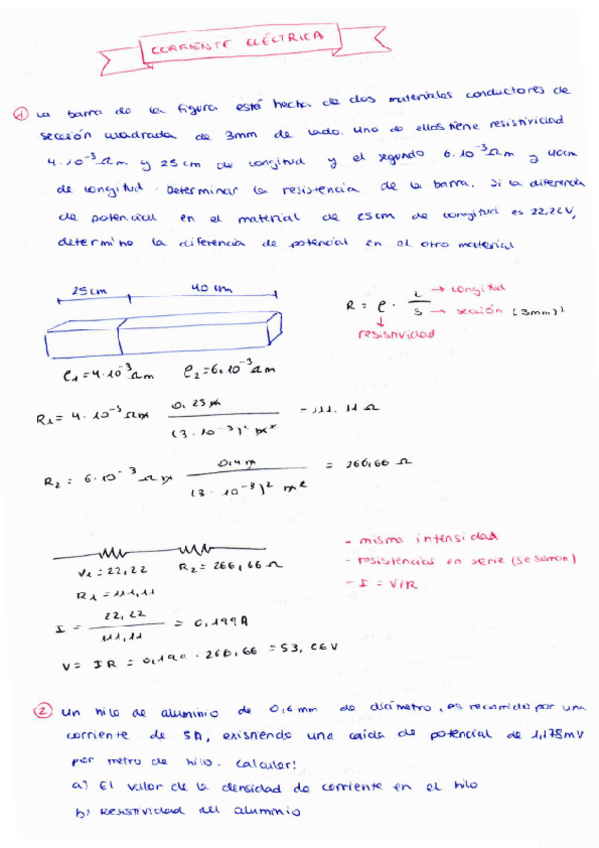 CORRIENTE ELÉCTRICA
① La barra de la figura está hecha de dos materiales conductores de
sección cuadrada de 3mm de lado. Uno de ellos tiene resistividad
4·10⁻³ Ωm y 25cm de longitud y el segundo 6·10⁻³ Ωm y 40cm
de longitud. Determinar la resistencia de la barra. Si la diferencia
de potencial en el material de 25cm de longitud es 22,22V,
determine la diferencia de potencial en el otro material
25cm 40cm
R = ρ · L/S → longitud → sección (3mm)²
resistividad
ρ₁=4·10⁻³Ωm ρ₂=6·10⁻³Ωm
R₁= 4·10⁻³Ωm 0,25m/(3·10⁻³)² m² = 111,11 Ω
R₂= 6·10⁻³Ωm 0,4m/(3·10⁻³)² m² = 266,66 Ω
- misma intensidad
- resistencias en serie (se suman)
- I = V/R
V₁=22,22 R₂=266,66Ω
R₁=111,11
I = 22,22/111,11 = 0,199A
V= IR = 0,199·266,66 = 53,06V
② Un hilo de aluminio de 0,6mm de diámetro, es recorrido por una
corriente de 5A, existiendo una caída de potencial de 1,175mV
por metro de hilo. Calcular:
a) El valor de la densidad de corriente en el hilo
b) Resistividad del aluminio